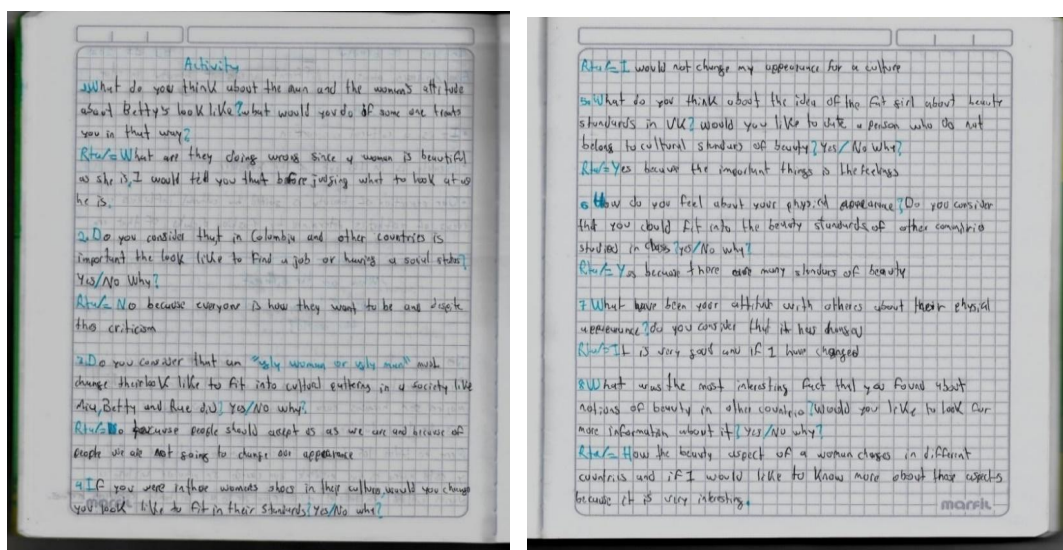 Activity
1. What do you think about the man and the woman's attitude
about Betty's look like? what would you do if some one treats
you in that way?
Rta/= What are they doing wrong since a woman is beautiful
as she is, I would tell you that before judging what to look at us
he is.
2. Do you consider that in Colombia and other countries is
important the look like to find a job or having a social status?
Yes/No Why?
Rta/= No because everyone is how they want to be and despite
the criticism
3. Do you consider that an "ugly woman or ugly man" must
change their look like to fit into cultural patterns in a society like
Mia, Betty and Rue did? Yes/No why?
Rta/= No because people should accept us as we are and because of
people we are not going to change our appearance
4. If you were in those womens shoes in their culture, would you change
you look like to fit in their standards? Yes/No why?
marfil
Rta/= I would not change my appearance for a culture
5. What do you think about the idea of the fit girl about beauty
standards in UK? would you like to date a person who do not
belong to cultural standars of beauty? Yes/No Why?
Rta/= Yes because the important things is the feelings
6 How do you feel about your physical appearance? Do you consider
that you could fit into the beauty standards of other countries
studied in class? Yes/No why?
Rta/= Yes because there are many standars of beauty
7 What have been your attitut with others about their physical
appearance? do you consider that it has changed
Rta/= It is very good and if I have changed
8 What was the most interesting fact that you found about
notions of beauty in other countries? Would you like to look for
more information about it? Yes/No why?
Rta/= How the beauty aspect of a woman changes in different
countries and if I would like to know more about those aspects
because it is very interesting.
marfil